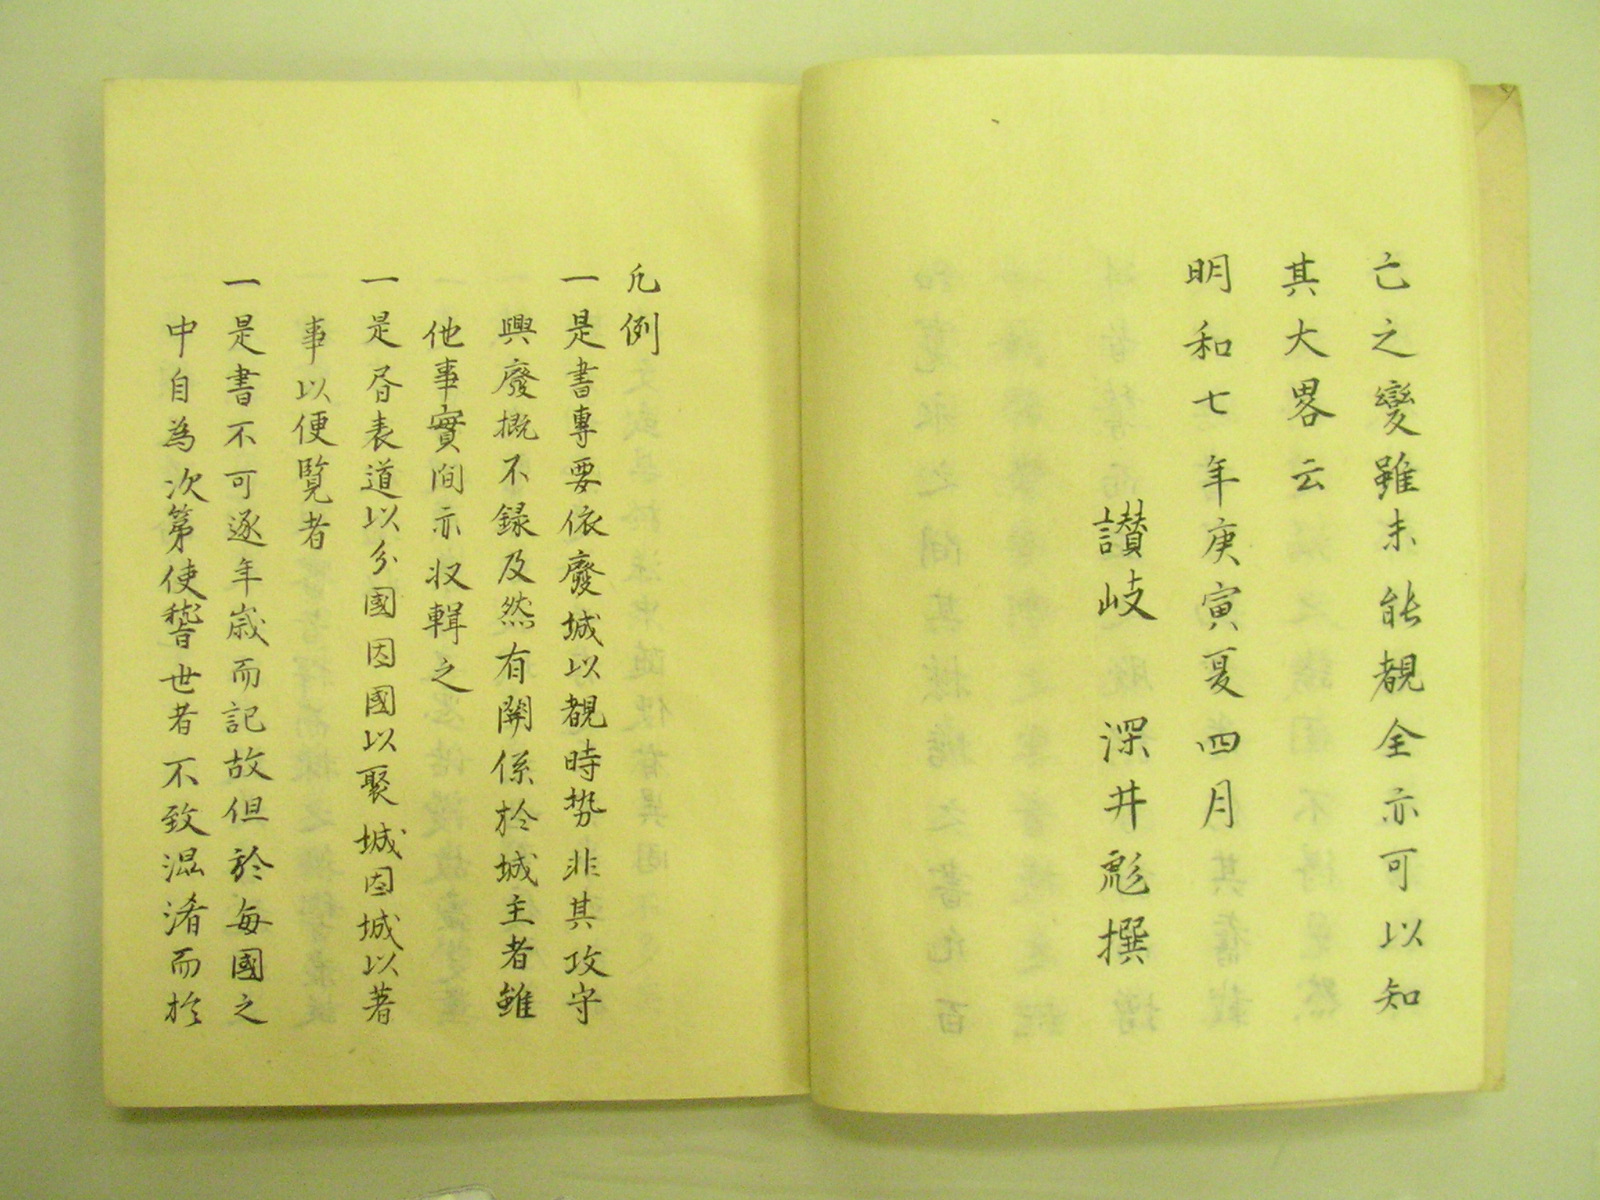 亡之變雖未能覩全亦可以知
其大畧云
明和七年庚寅夏四月
讃岐 深井彪撰
凡例
一是書專要依廢城以覩時勢非其攻守
興廢概不録及然有關係於城主者雖
他事實間亦収輯之
一是昏表道以分國因國以聚城因城以著
事以便覧者
一是書不可逐年歳而記故但於每國之
中自為次第使稽世者不致混淆而於